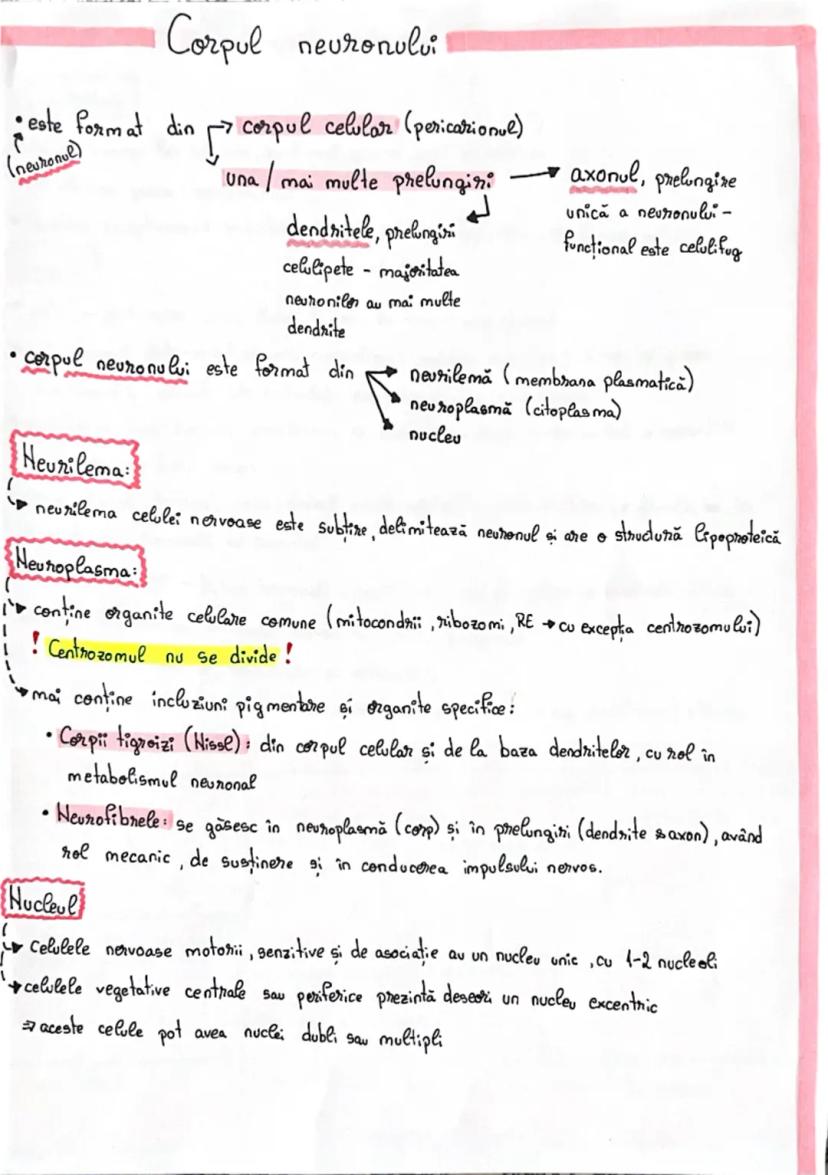 Corpul neuronului
• este format din → corpul celular (pericarionul)
(neuronul)
una / mai multe prelungiri → axonul, prelungire
unică a neuronului -
funcțional este celulifug
dendritele, prelungiri
celulipete - majoritatea
neuronilor au mai multe
dendrite
• corpul neuronului este format din → neurilemă (membrana plasmatică)
→ neuroplasmă (citoplasma)
nucleu
Neurilema:
→ neurilema celulei nervoase este subțire, delimitează neuronul și are o structură lipoproteică
Neuroplasma:
→ conține organite celulare comune (mitocondrii, ribozomi, RE → cu excepția centrozomului)
! Centrozomul nu se divide !
→ mai conține incluziuni pigmentare și organite specifice:
• Corpii tigroizi (Nissl): din corpul celular și de la baza dendritelor, cu rol în
metabolismul neuronal
• Neurofibrele: se găsesc în neuroplasmă (corp) și în prelungiri (dendrite & axon), având
rol mecanic, de susținere și în conducerea impulsului nervos.
Nucleul
→ celulele nervoase motorii, senzitive și de asociație au un nucleu unic, cu 1-2 nucleoli
→ celulele vegetative centrale sau periferice prezintă deseori un nucleu excentric
⇒ aceste celule pot avea nuclei dubli sau multipli